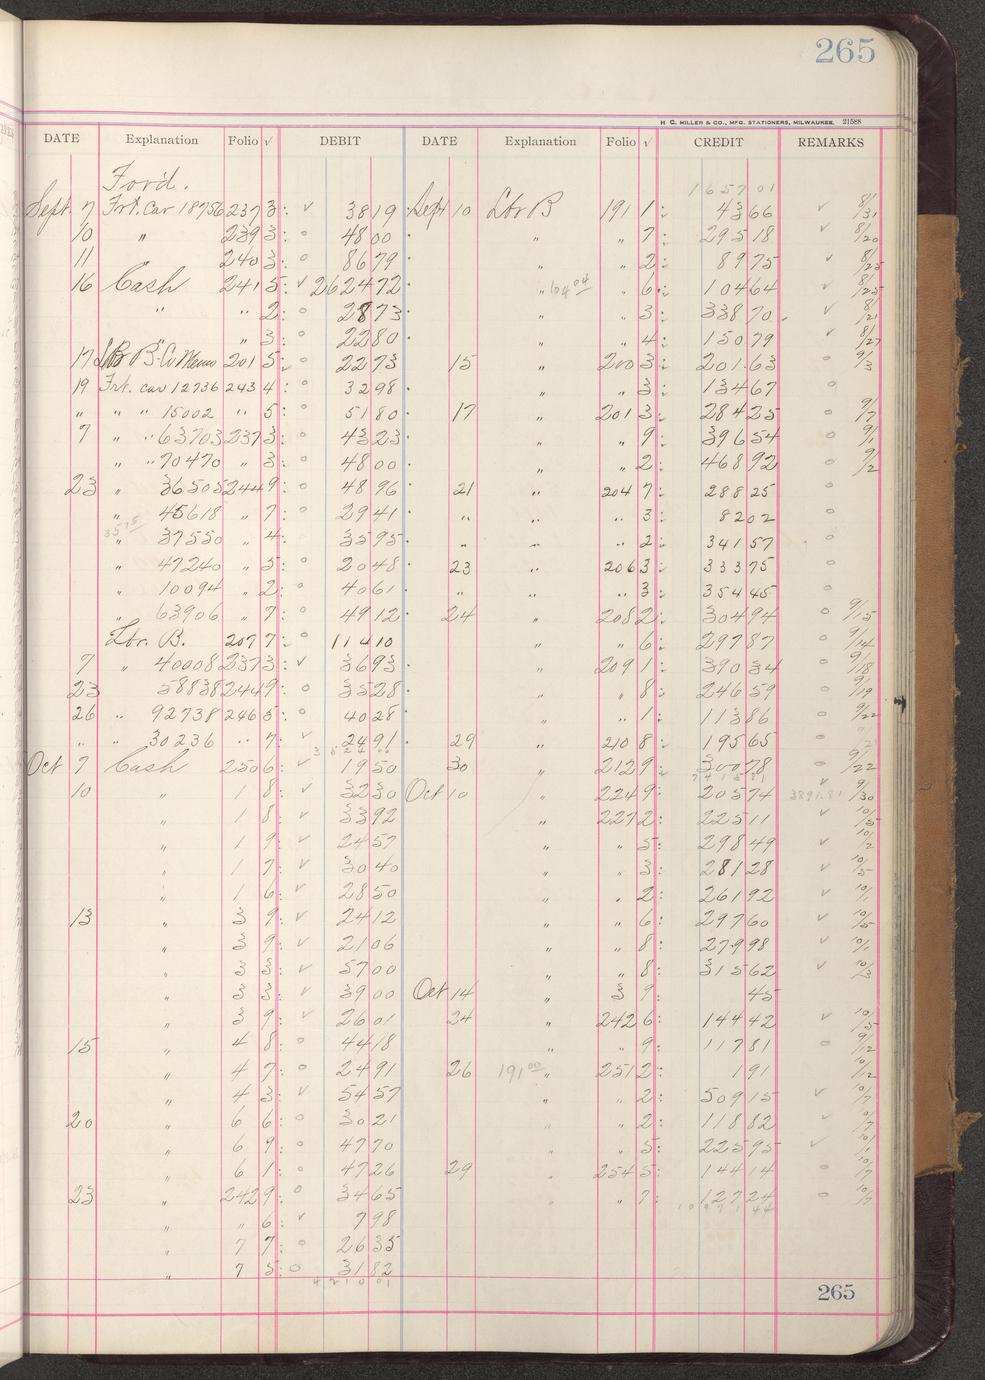 265
H. C. MILLER & CO., MFG. STATIONERS, MILWAUKEE. 21588
DATE Explanation Folio √ DEBIT DATE Explanation Folio √ CREDIT REMARKS
Ford. 1657 01
Sept. 7 Frt. Car 18756 237 3 √ 38 19 Sept 10 Lbr B 191 1 43 66 √ 8/31
10 " 239 3 o 48 00 " " 7 295 18 √ 8/20
11 240 3 o 86 79 " " 2 89 75 √ 8/25
16 Cash 241 5 √ 2624 72 " 104 04 " 6 104 64 √ 8/25
" " 2 o 28 73 " " 3 338 70 √ 8/21
" " 3 o 22 80 " " 4 150 79 √ 8/27
17 B-Cr Memo 201 5 o 22 73 15 " 200 3 201 63 o 9/3
19 Frt. car 12736 243 4 o 32 98 " " 3 134 67 o
" " " 15002 " 5 o 51 80 17 " 201 3 284 25 o 9/7
7 " " 63703 237 3 o 43 23 " " 9 396 54 o 9/1
" " 70470 " 3 o 48 00 " " 2 468 92 o 9/2
23 " 36505 244 9 o 48 96 21 " 204 7 288 25 o
" 45618 " 7 o 29 41 " " " 3 82 02 o
" 37550 " 4 35 95 " " " 2 341 57 o
" 47240 " 5 o 20 48 23 " 206 3 333 75 o
" 10094 " 2 o 40 61 " " " 3 354 45 o
" 63906 " 7 o 49 12 24 " 208 2 304 94 o 9/15
Lbr. B. 207 7 o 114 10 " " 6 297 87 o 9/14
7 " 40008 237 3 √ 36 93 " 209 1 390 34 o 9/18
23 58838 244 9 o 35 28 " " 8 246 59 o 9/19
26 " 92738 246 5 o 40 28 " " 1 113 86 o 9/22
" " 30236 " 7 √ 24 91 29 " 210 8 195 65 o
Oct 7 Cash 250 6 √ 19 50 30 " 212 9 300 78 o 9/22
10 " 1 8 √ 32 30 Oct 10 " 224 9 205 74 √ 3891.81 9/30
" 1 8 √ 33 92 " 227 2 225 11 √ 10/5
" 1 9 √ 24 57 " " 5 298 49 √ 10/2
" 1 7 √ 30 40 " " 3 281 28 √ 10/5
" 1 6 √ 28 50 " " 2 261 92 √ 10/1
13 " 3 9 √ 24 12 " " 6 297 60 √ 10/5
" 3 9 √ 21 06 " " 8 279 98 √ 10/1
" 3 3 √ 57 00 " " 8 315 62 √ 10/3
" 3 3 √ 39 00 Oct 14 " 3 9 45
" 3 9 √ 26 01 24 " 242 6 144 42 √ 10/5
15 " 4 8 o 44 18 " " 9 117 81 o 9/12
" 4 7 o 24 91 26 191 00 " 251 2 1 91 o 10/12
" 4 3 √ 54 57 " " 2 509 15 √ 10/7
20 " 6 6 o 30 21 " " 2 118 82 √
" 6 9 o 47 70 " " 5 225 95 √ 10/1
" 6 1 o 47 26 29 " 254 5 144 14 o 10/7
23 " 242 9 o 34 65 " " 7 127 24 o 10/7
" " 6 √ 7 98 10971 44
" 7 7 o 26 35
" 7 5 o 31 82
4210 01
265